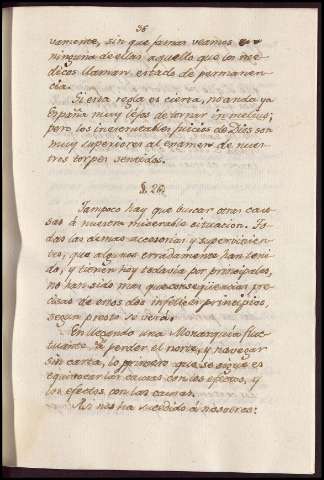 36
vamente, sin que jamas veamos en
ninguna de ellas aquello que los me-
dicos llaman estado de permanen-
cia.
Si esta regla es cierta, no anda ya
España muy lejos de tornar in melius;
pero los inescrutables juicios de Dios son
muy superiores al examen de nues-
tros torpes sentidos.
§. 26.
Tampoco hay que buscar otras cau-
sas á nuestra miserable situacion. To-
das las demas accesorias y supervinien-
tes, que algunos erradamente han teni-
do, y tienen hoy todavia por principales,
no han sido mas que consequencias pre-
cisas de enos dos infelices principios,
segun presto se verá.
En llegando una Monarquia fluc-
tuante á perder el norte, y navegar
sin carta, lo primero que se sigue es
equivocar las causas con los efectos, y
los efectos con las causas.
Asi nos ha sucedido á nosotros: